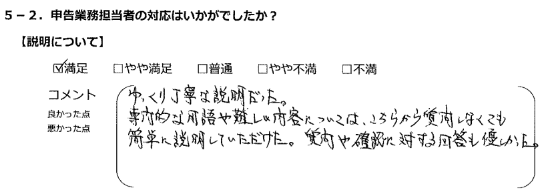 5－2．申告業務担当者の対応はいかがでしたか？
【説明について】
☑満足 □やや満足 □普通 □やや不満 □不満
コメント
良かった点
悪かった点
ゆっくり丁寧な説明だった。
専門的な用語や難しい内容については、こちらから質問しなくても
簡単に説明していただけた。質問や確認に対する回答も優しかった。